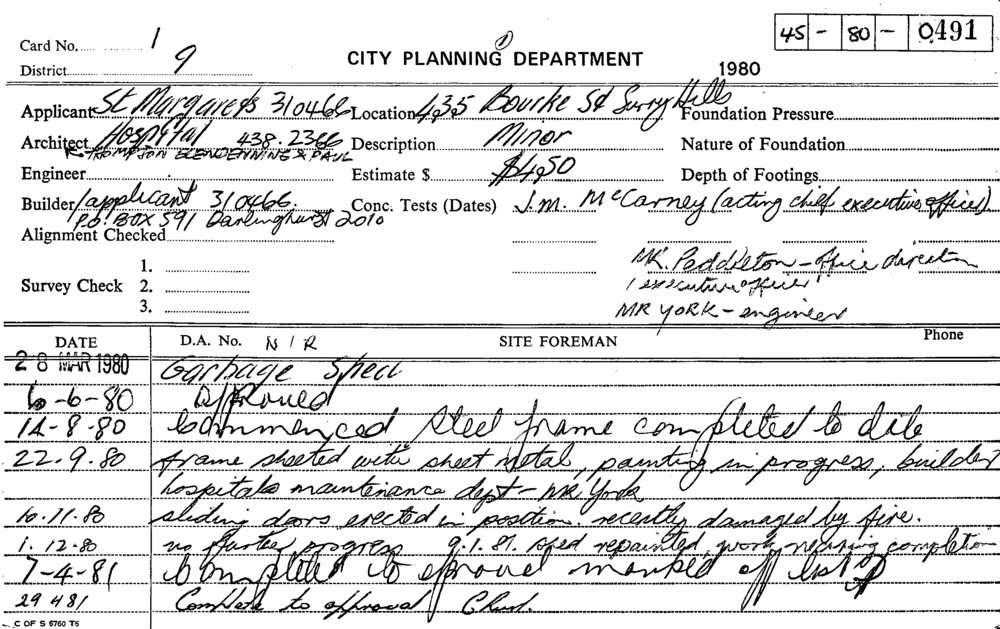 Card No. 1
45 - 80 - 0491
District 9
CITY PLANNING DEPARTMENT
1980
Applicant St Margarets 310466 Location 435 Bourke St Surry Hills Foundation Pressure
Architect Hospital 438.2366 Description Minor Nature of Foundation
THOMPSON GLENDENNING & PAUL
Engineer Estimate $ $450 Depth of Footings
Builder/applicant 310466. Conc. Tests (Dates) J.M. McCarney (acting chief executive officer)
P.O. BOX 591 Darlinghurst 2010
Alignment Checked
MR. Peddleton - office direction
1.
Survey Check 2.
1 executive officer
3.
MR YORK - engineer
DATE D.A. No. N/R SITE FOREMAN Phone
28 MAR 1980 Garbage Shed
6-6-80 Approved
14-8-80 Commenced Steel frame completed to date
22.9.80 frame sheeted with sheet metal, painting in progress, builder
hospitals maintenance dept - MR York
10.11.80 sliding doors erected in position. recently damaged by fire.
1.12.80 no further progress 9.1.81. shed repainted, work nearing completion
7-4-81 Completed to aproval marked off list
29 4 81 Complete to approval
C OF S 6760 T6